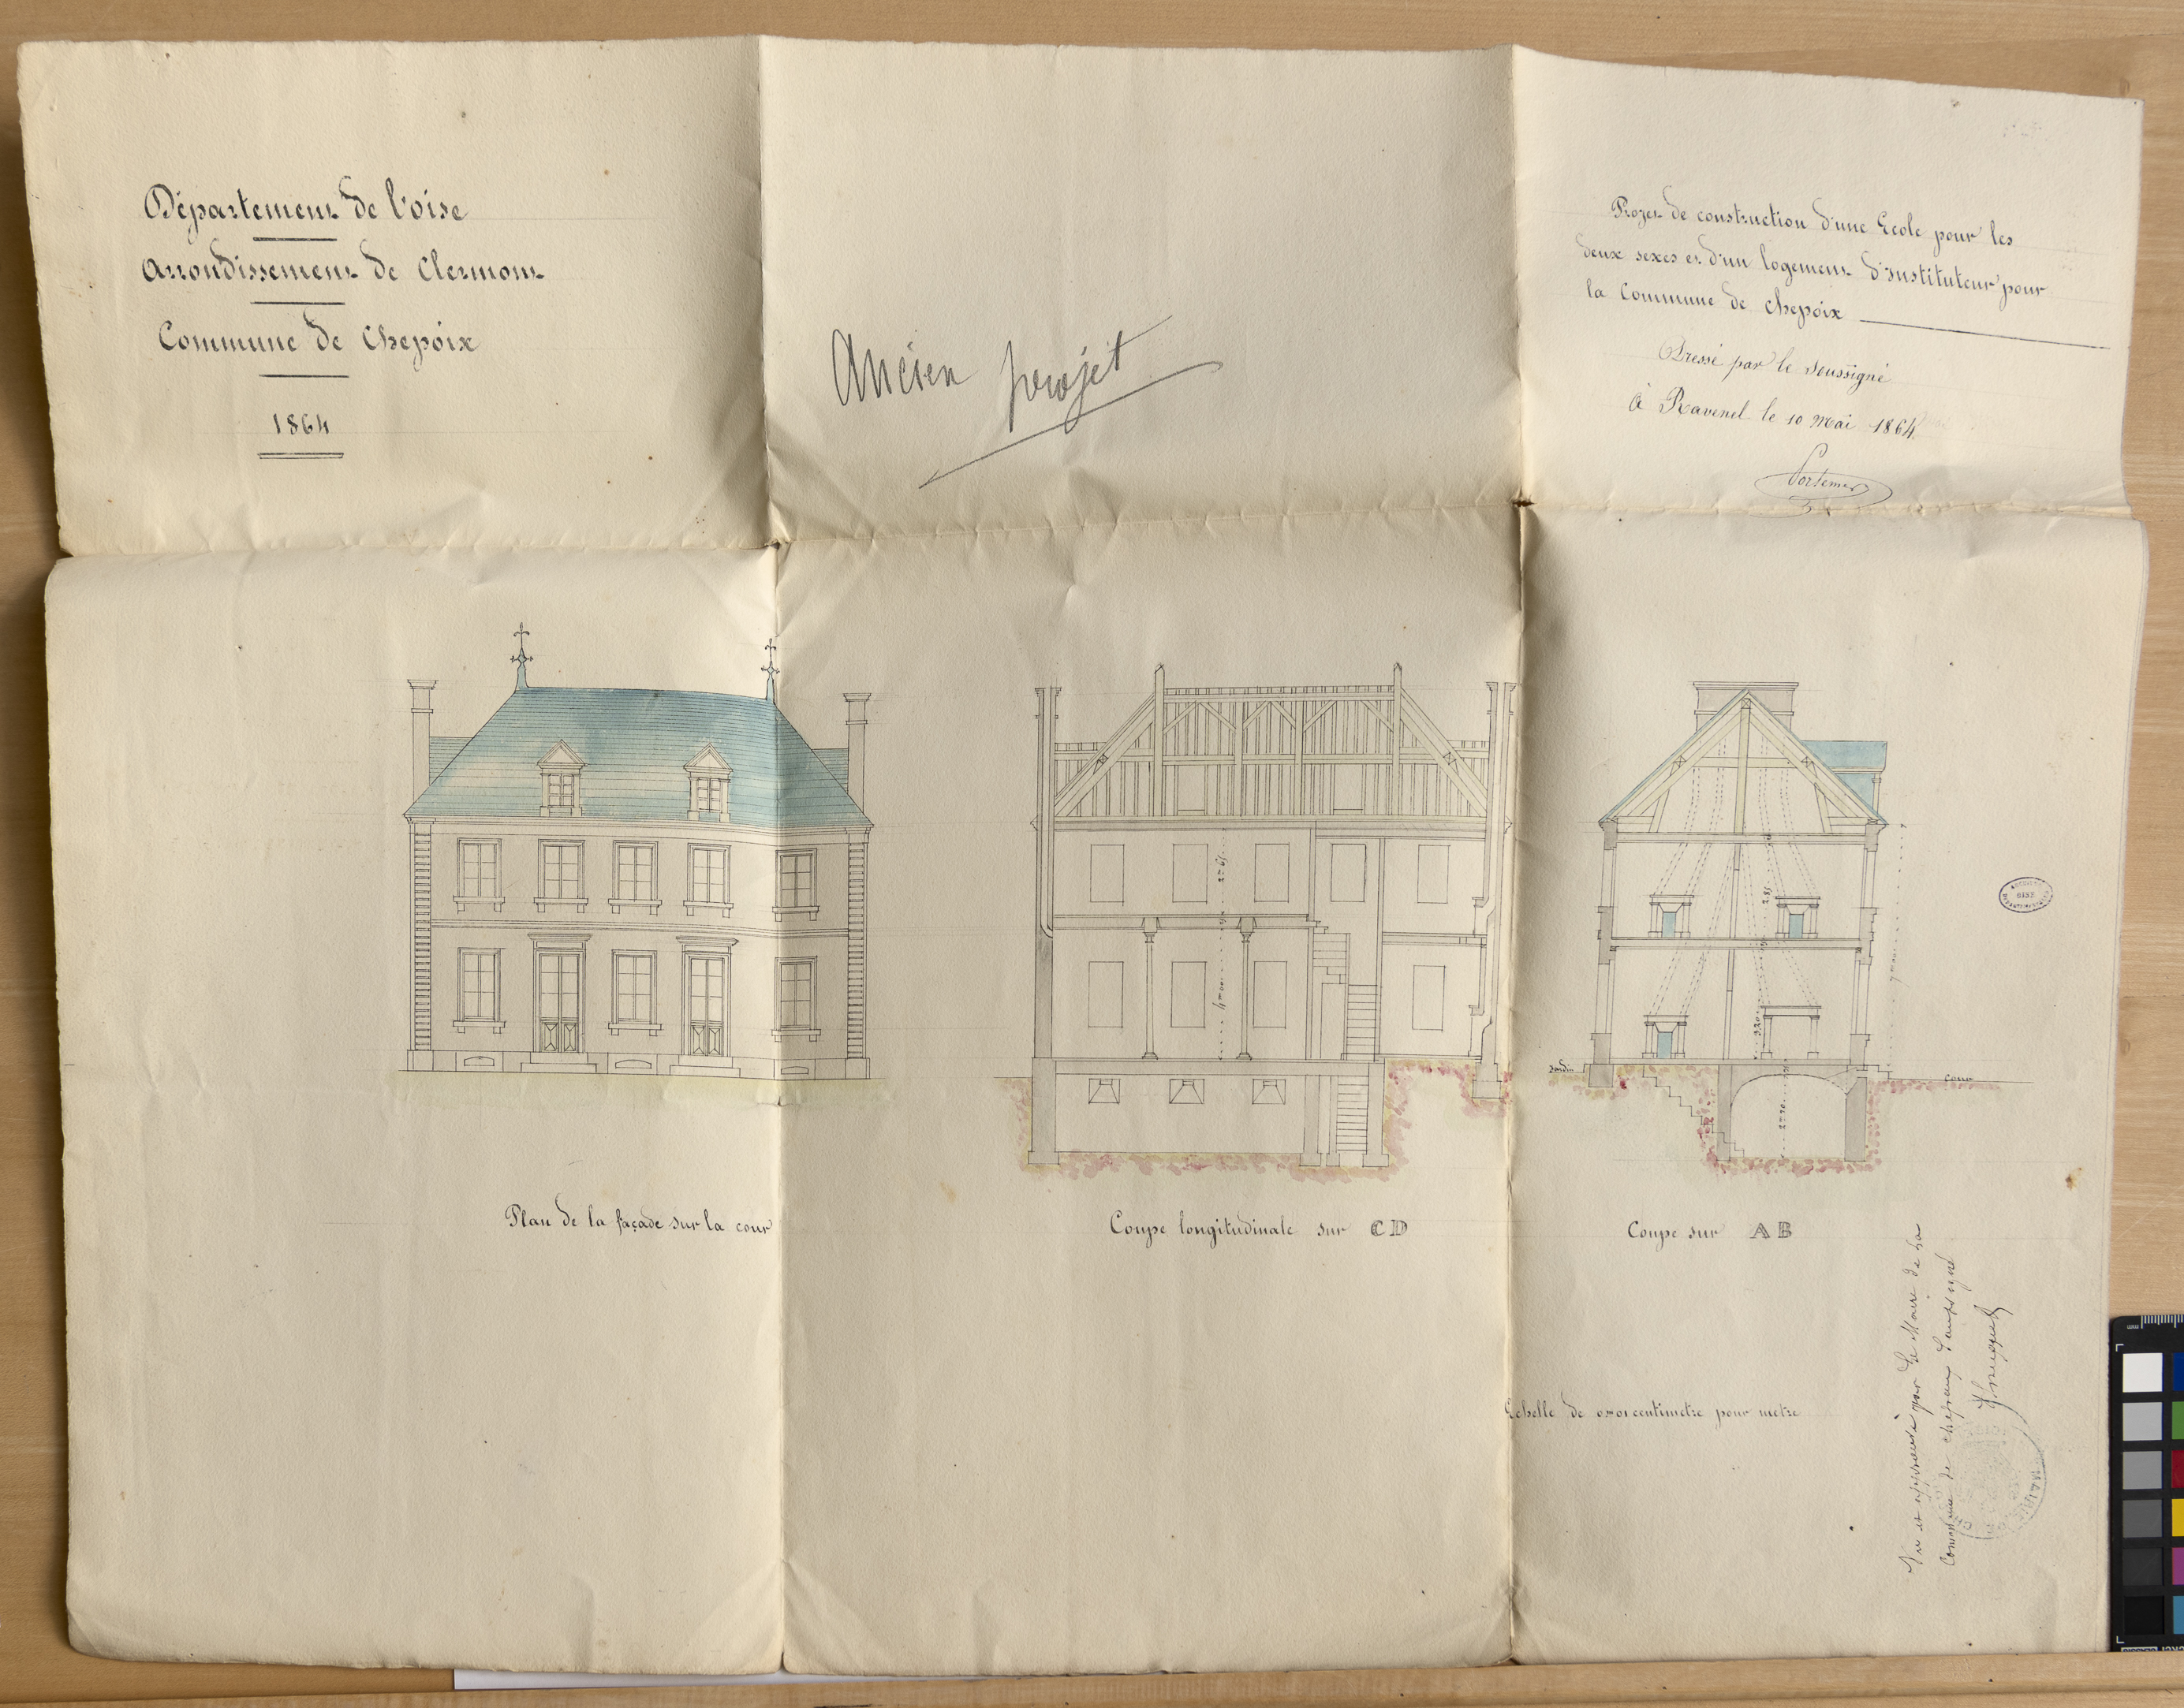 Département de l'oise
arrondissement de Clermont
Commune de Chepoix
1864
Ancien projet
Projet de construction d'une Ecole pour les
deux sexes et d'un logement d'instituteur pour
la Commune de Chepoix
Dressé par le soussigné
à Ravenel le 10 Mai 1864
Portemer
2m65
4m00
2.85
3.20
2m20
jardin
cour
Plan de la façade sur la cour
Coupe longitudinale sur CD
Coupe sur AB
Echelle de 0m01 centimetre pour metre
Vu et approuvé par le Maire de la
Commune de chepoix soussigné